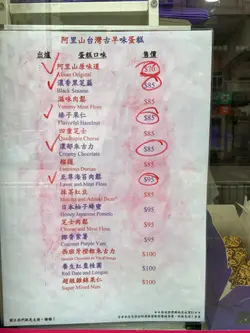 阿里山台灣古早味蛋糕
出爐 蛋糕口味 售價
阿里山原味道 $70
Alisan Original
濃香黑芝麻 $85
Black Sesame
滋味肉鬆 $85
Yummy Meat Floss
榛子果仁 $85
Flavorful Hazelnut
四重芝士 $85
Quadruple Cheese
濃郁朱古力 $85
Creamy Chocolate
榴槤 $85
Durian
至尊海苔肉鬆 $95
Laver and Meat Floss
抹茶紅豆 $85
Matcha and Adzuki Bean
日本柚子蜂蜜 $95
Honey Japanese Pomelo
芝士肉鬆 $95
Cheese and Meat Floss
椰香紫薯 $95
Gourmet Purple Yam
西班牙提子朱古力 $100
養生紅棗桂圓 $100
Red Date and Longan
超級雜錦果仁 $100
Super Mixed Nuts